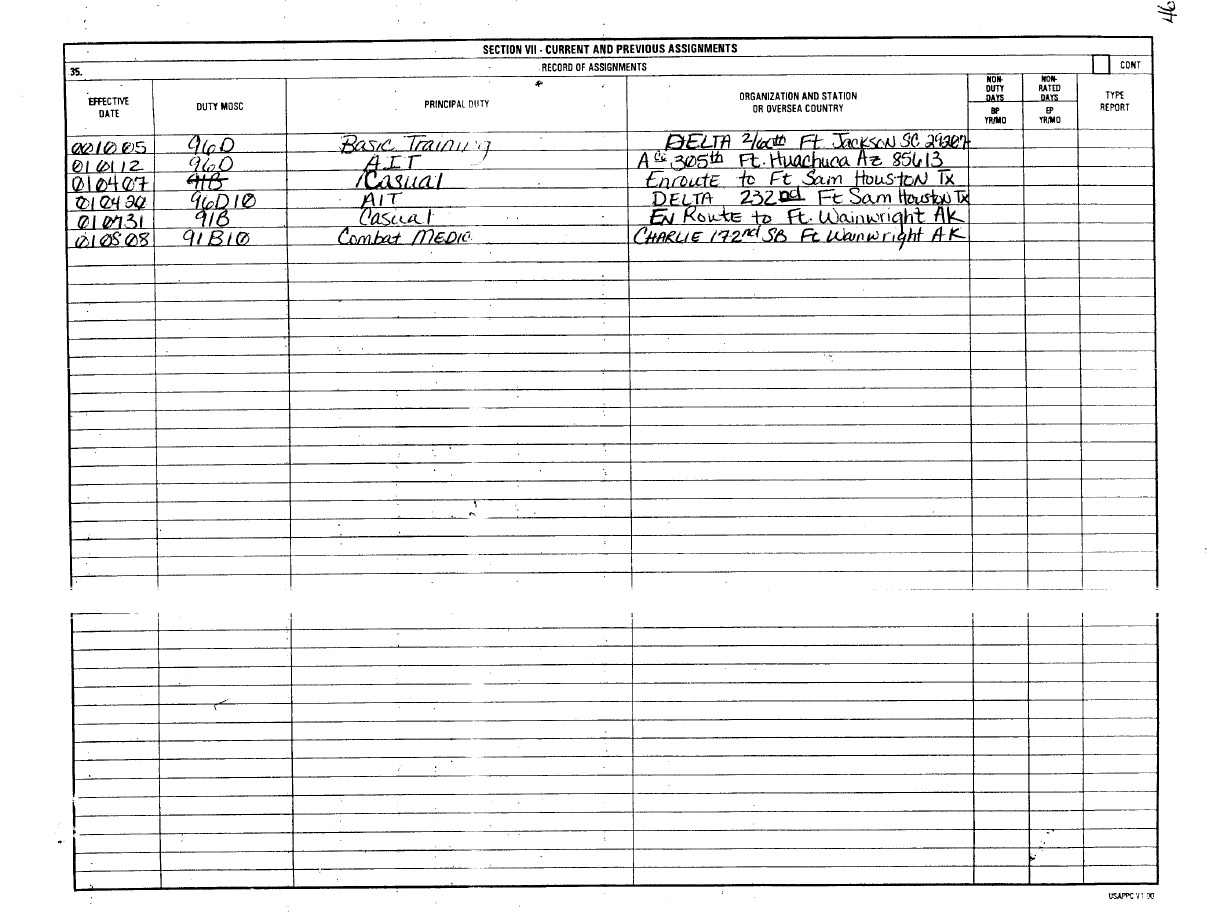 46
SECTION VII - CURRENT AND PREVIOUS ASSIGNMENTS
35. RECORD OF ASSIGNMENTS CONT
EFFECTIVE DATE DUTY MOSC PRINCIPAL DUTY ORGANIZATION AND STATION OR OVERSEA COUNTRY NON-DUTY DAYS BP YR/MO NON-RATED DAYS EP YR/MO TYPE REPORT
001005 96D Basic Training DELTA 2/60th Ft. Jackson SC 29207
010112 96D AIT A Co 305th Ft. Huachuca Az 85613
010407 91B Casual Enroute to Ft Sam Houston Tx
96D10 AIT DELTA 232nd Ft Sam Houston Tx
010731 91B Casual EN Route to Ft. Wainwright AK
010808 91B10 Combat MEDIC CHARLIE 172nd SB Ft Wainwright AK
USAPPC V1.00